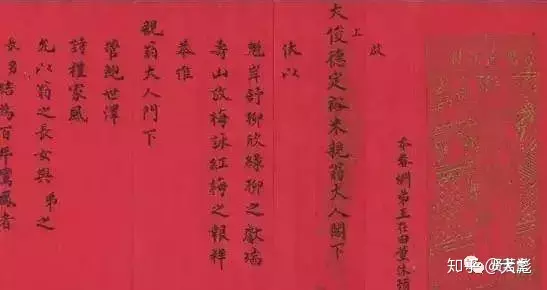 忝眷姻弟王在田薰沐頓
啟
上
大俊德定裕朱親翁大人閣下
伏以
魁岸詩柳欣綠柳之獻瑞
壽山啟梅詠紅梅之報祥
恭惟
親翁大人門下
管鮑世澤
詩禮家風
允以翁之長女與弟之
長男結為百年鸞鳳者
知乎